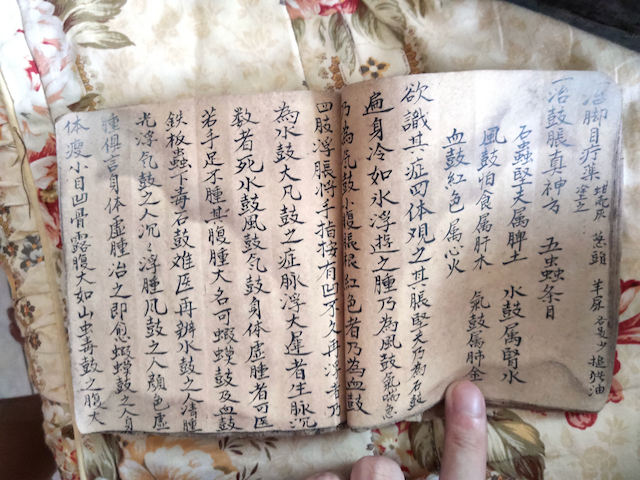 治脚目疔藥 葱頭 羊屎
一治鼓脹真神方 五蟲条目
石蟲堅天属脾土 水鼓属腎水
風鼓怕食属肝木 氣鼓属肺金
血鼓紅色属心火
欲識其症四体观之其脹堅天乃為石鼓
遍身冷如水浮遊之腫乃為風鼓氣喘急
乃為氣鼓小腹脹根紅色者乃為血鼓
四肢浮脹将手指按有凹不久再浮者乃
為水鼓大凡鼓之症脉浮大犀者生脉沉
数者死水鼓風鼓气鼓身体虚腫者可医
若手足不腫其腹腫大名可蝦蟆鼓及血鼓
鉄板蟲下毒石鼓难医再辨水鼓之人清腫
光浮气鼓之人沉々浮腫風鼓之人顔色虚
腫俱言身体虚腫治之即愈蝦蟆鼓之人身
体瘦小目凹骨露腹大如山虫毒鼓之腹大